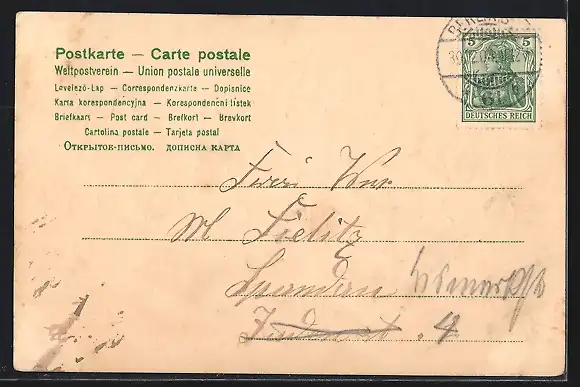 Postkarte — Carte postale
Weltpostverein — Union postale universelle
Levelező-Lap — Correspondenzkarte — Dopisnice
Karta korespondencyjna — Korespondenčni listek
Briefkaart — Post card — Brefkort — Brevkort
Cartolina postale — Tarjeta postal
Открытое-письмо. дописна карта
5 5
DEUTSCHES REICH
BERLIN
M Fielitz
Spandau
4